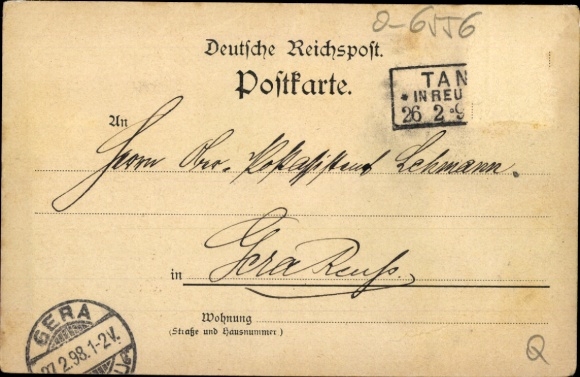 0-6556
Deutsche Reichspost.
Postkarte.
TAN
* IN REU
26 2 9
An
Herrn Ober-Postassistent Lehmann.
in Gera Reuss.
Wohnung
(Straße und Hausnummer)
GERA
27.2.98.1-2V.
Q